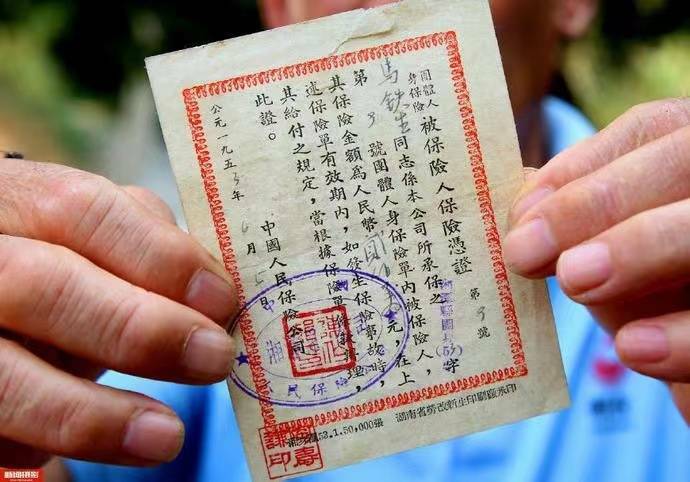 團體人身保險被保險人保險憑證
字第3號
馬鉄生同志係本公司所承保之
第3號團體人身保險單內被保險人,
其保險金額為人民幣元,在上
述保險單有效期內,如發生保險事故時,
其給付之規定,當根據保險單辦理,
此證。
中國人民保險公司
公元一九五3年6月5日
53.1.50,000張 湖南省勞改新生印刷廠承印